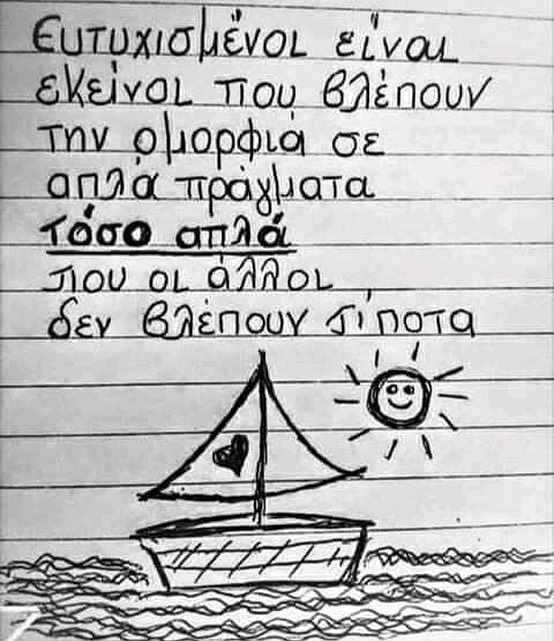 Ευτυχισμένοι είναι
εκείνοι που βλέπουν
την ομορφιά σε
απλά πράγματα
τόσο απλά
που οι άλλοι
δεν βλέπουν τίποτα